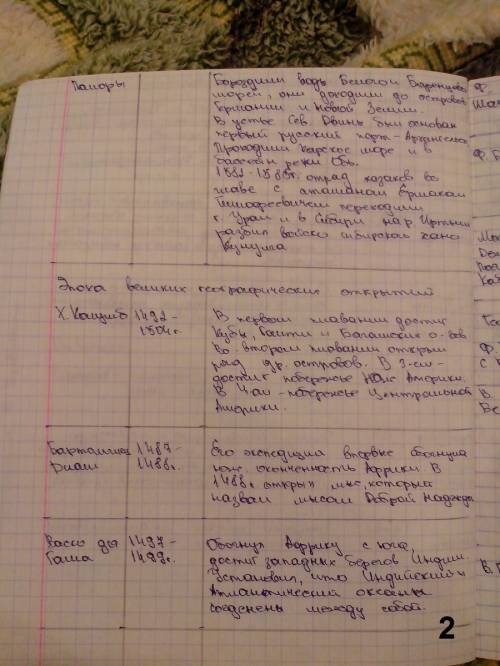 Поморы
Бороздили воды Белого и Баренцова
морей, они доходили до островов
Германии и Новой Земли.
В устье Сев. Двины был основан
первый русский порт - Архангельск
Проходили Карское море и в
бассейн реки Обь.
отряд казаков во
главе с атаманом Ермаком
Тимофеевичем переходили
г. Урал и в Сибири на р. Иртыш
разбил войско сибирского хана
Кучума
Эпоха великих географических открытий
Х. Колумб 1492-
1504г.
В первом плавании достиг
Кубы, Гаити и Багамских о-вов
Во втором плавании открыл
ряд др. островов. В 3-ем-
достиг побережье Юж. Америки.
В 4-ом - побережье Центральной
Америки.
Бартоломеу
Диаш
1487-
1488г.
Его экспедиция впервые обогнула
юж. оконечность Африки. В
1488г открыл мыс, который
назвал мысом Доброй Надежды
Васко да
Гама
1497-
1499г.
Обогнул Африку с юга,
достиг западных берегов Индии
Установил, что Индийский и
Атлантический океаны
соеденены между собой.
2